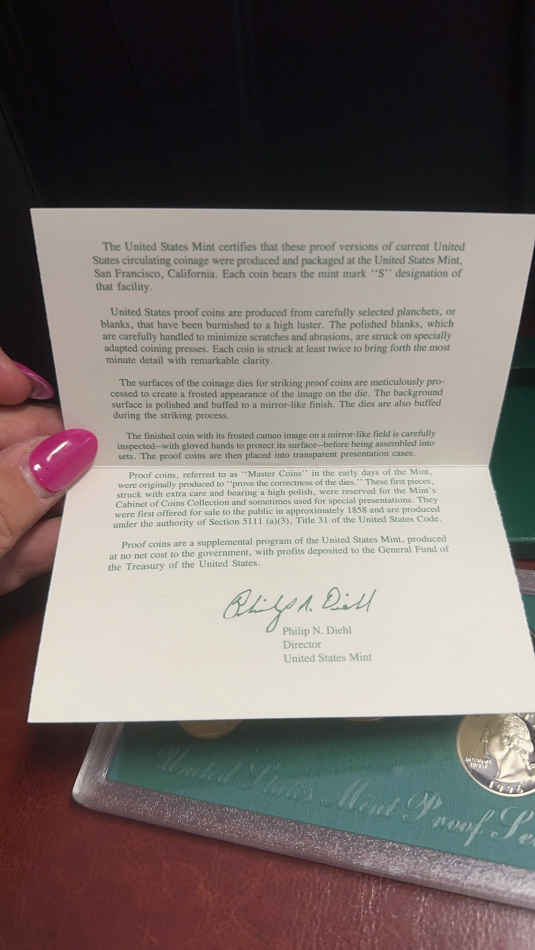 The United States Mint certifies that these proof versions of current United
States circulating coinage were produced and packaged at the United States Mint,
San Francisco, California. Each coin bears the mint mark ‘‘S’’ designation of
that facility.
United States proof coins are produced from carefully selected planchets, or
blanks, that have been burnished to a high luster. The polished blanks, which
are carefully handled to minimize scratches and abrasions, are struck on specially
adapted coining presses. Each coin is struck at least twice to bring forth the most
minute detail with remarkable clarity.
The surfaces of the coinage dies for striking proof coins are meticulously pro-
cessed to create a frosted appearance of the image on the die. The background
surface is polished and buffed to a mirror-like finish. The dies are also buffed
during the striking process.
The finished coin with its frosted cameo image on a mirror-like field is carefully
inspected—with gloved hands to protect its surface—before being assembled into
sets. The proof coins are then placed into transparent presentation cases.
Proof coins, referred to as ‘‘Master Coins’’ in the early days of the Mint,
were originally produced to ‘‘prove the correctness of the dies.’’ These first pieces,
struck with extra care and bearing a high polish, were reserved for the Mint's
Cabinet of Coins Collection and sometimes used for special presentations. They
were first offered for sale to the public in approximately 1858 and are produced
under the authority of Section 5111 (a)(3), Title 31 of the United States Code.
Proof coins are a supplemental program of the United States Mint, produced
at no net cost to the government, with profits deposited to the General Fund of
the Treasury of the United States.
Philip N. Diehl
Philip N. Diehl
Director
United States Mint
United States Mint Proof Se